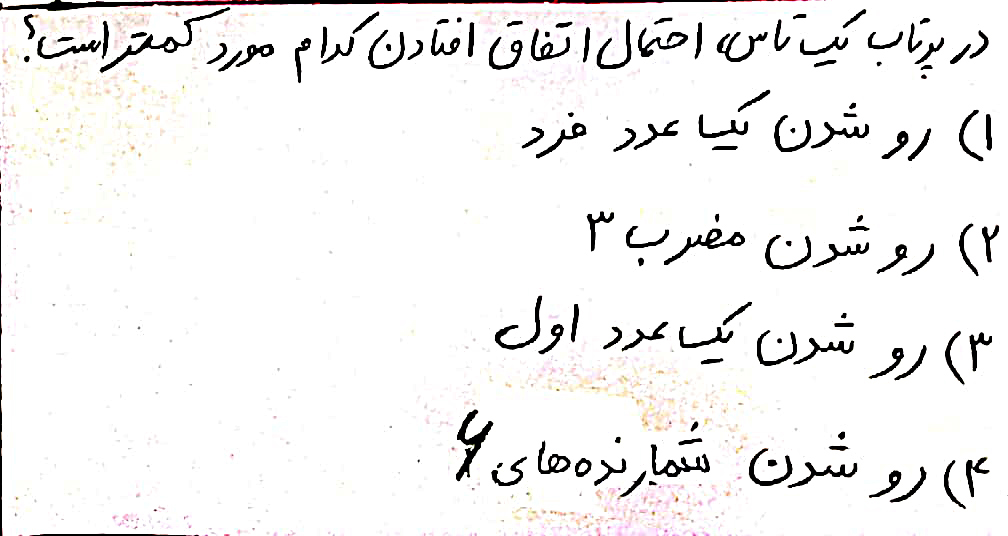 در پرتاب یک تاس، احتمال اتفاق افتادن کدام مورد کمتر است؟
۱) رو شدن یک عدد فرد
۲) رو شدن مضرب ۳
۳) رو شدن یک عدد اول
۴) رو شدن شمارنده‌های